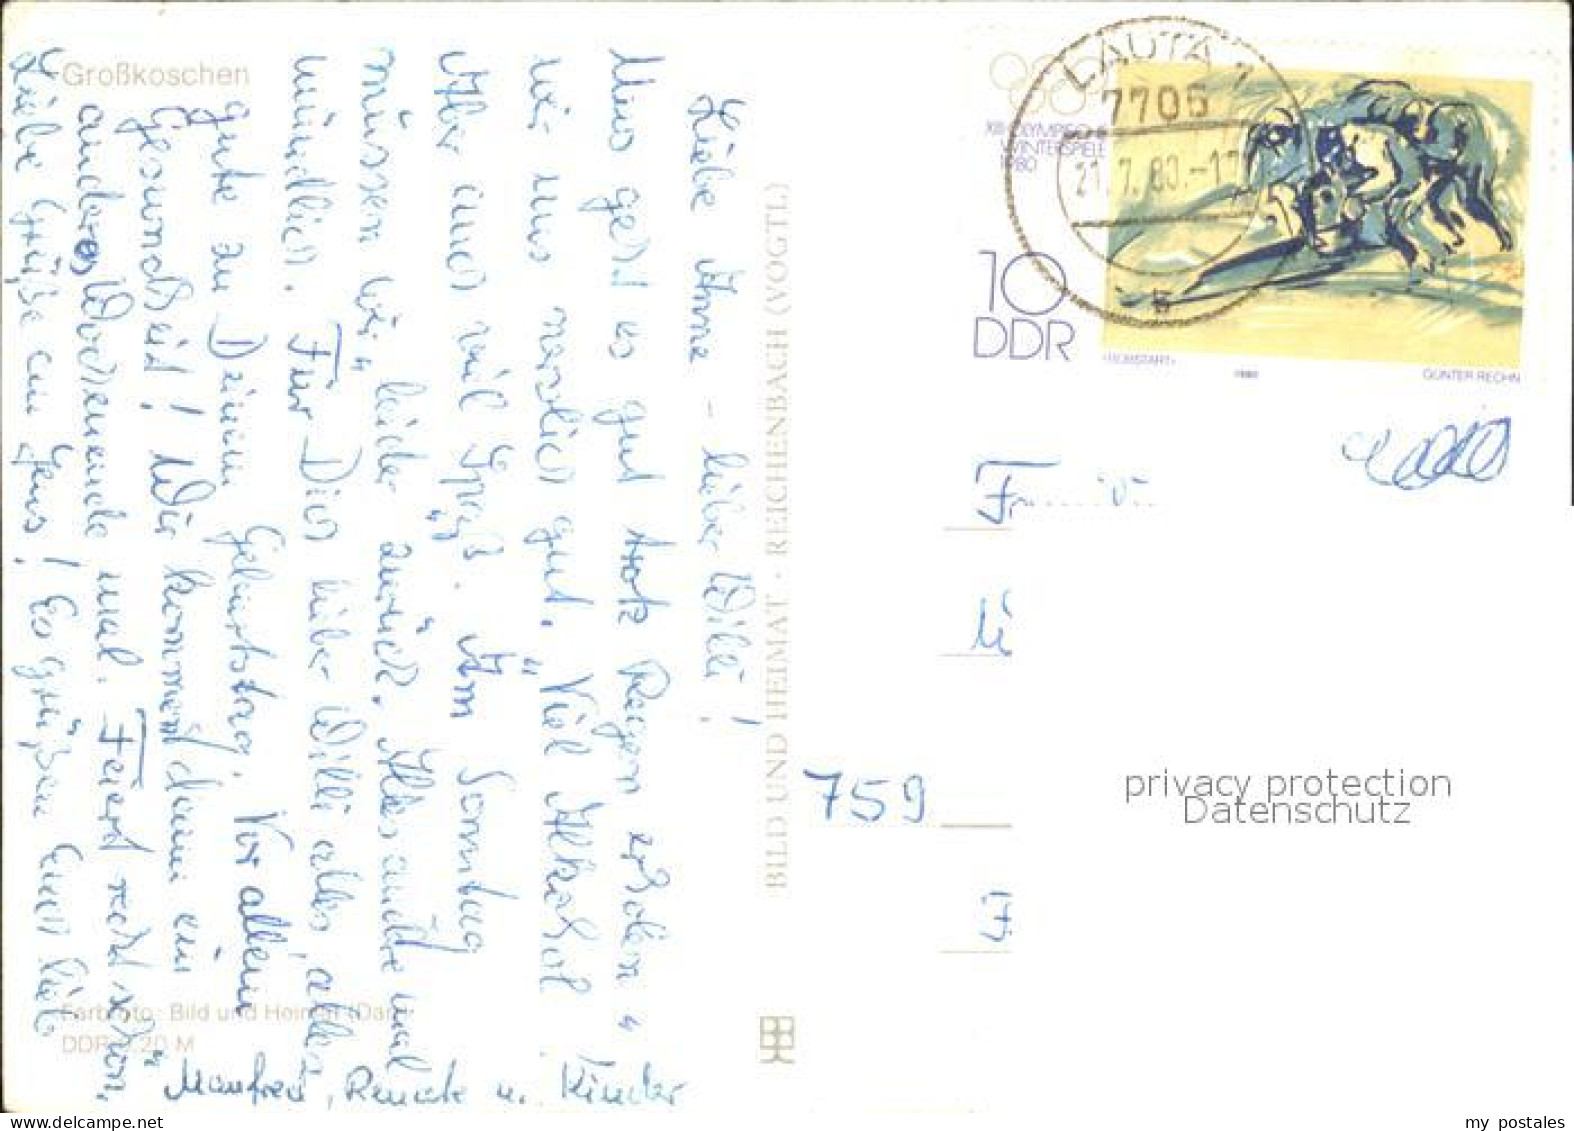 Großkoschen
Liebe Anne - lieber Willi!
Uns geht es gut trotz Regen erholen
wir uns herzlich gut. Viel Alkohol
Aber auch viel Spaß. Am Sonntag
müssen wir leider zurück. Alles andere mal
mündlich. Für Dich lieber Willi alles, alles
gute zu Deinem Geburtstag. Vor allem
Gesundheit! Wir kommen dann ein
anderes Wochenende mal. Feiert recht schön.
Liebe Grüße an Jens! Es grüßen Euch lieb
Manfred, Renate u. Kinder
Farbfoto: Bild und Heimat
DDR 0,20 M
BILD UND HEIMAT · REICHENBACH (VOGTL)
LAUTA 1
7705
21.7.80.-17
XIII. OLYMPISCHE
WINTERSPIELE
1980
10
DDR
1980
GÜNTER RECHN
759
privacy protection
Datenschutz
my postales